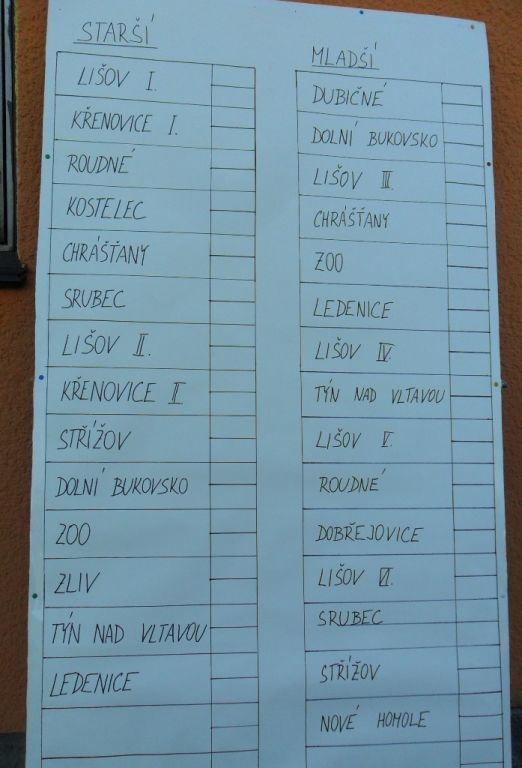 STARŠÍ
LIŠOV I.
KŘENOVICE I.
ROUDNÉ
KOSTELEC
CHRÁŠŤANY
SRUBEC
LIŠOV II.
KŘENOVICE II.
STŘÍŽOV
DOLNÍ BUKOVSKO
ZOO
ZLIV
TÝN NAD VLTAVOU
LEDENICE
MLADŠÍ
DUBIČNÉ
DOLNÍ BUKOVSKO
LIŠOV III.
CHRÁŠŤANY
ZOO
LEDENICE
LIŠOV IV.
TÝN NAD VLTAVOU
LIŠOV V.
ROUDNÉ
DOBŘEJOVICE
LIŠOV VI.
SRUBEC
STŘÍŽOV
NOVÉ HOMOLE